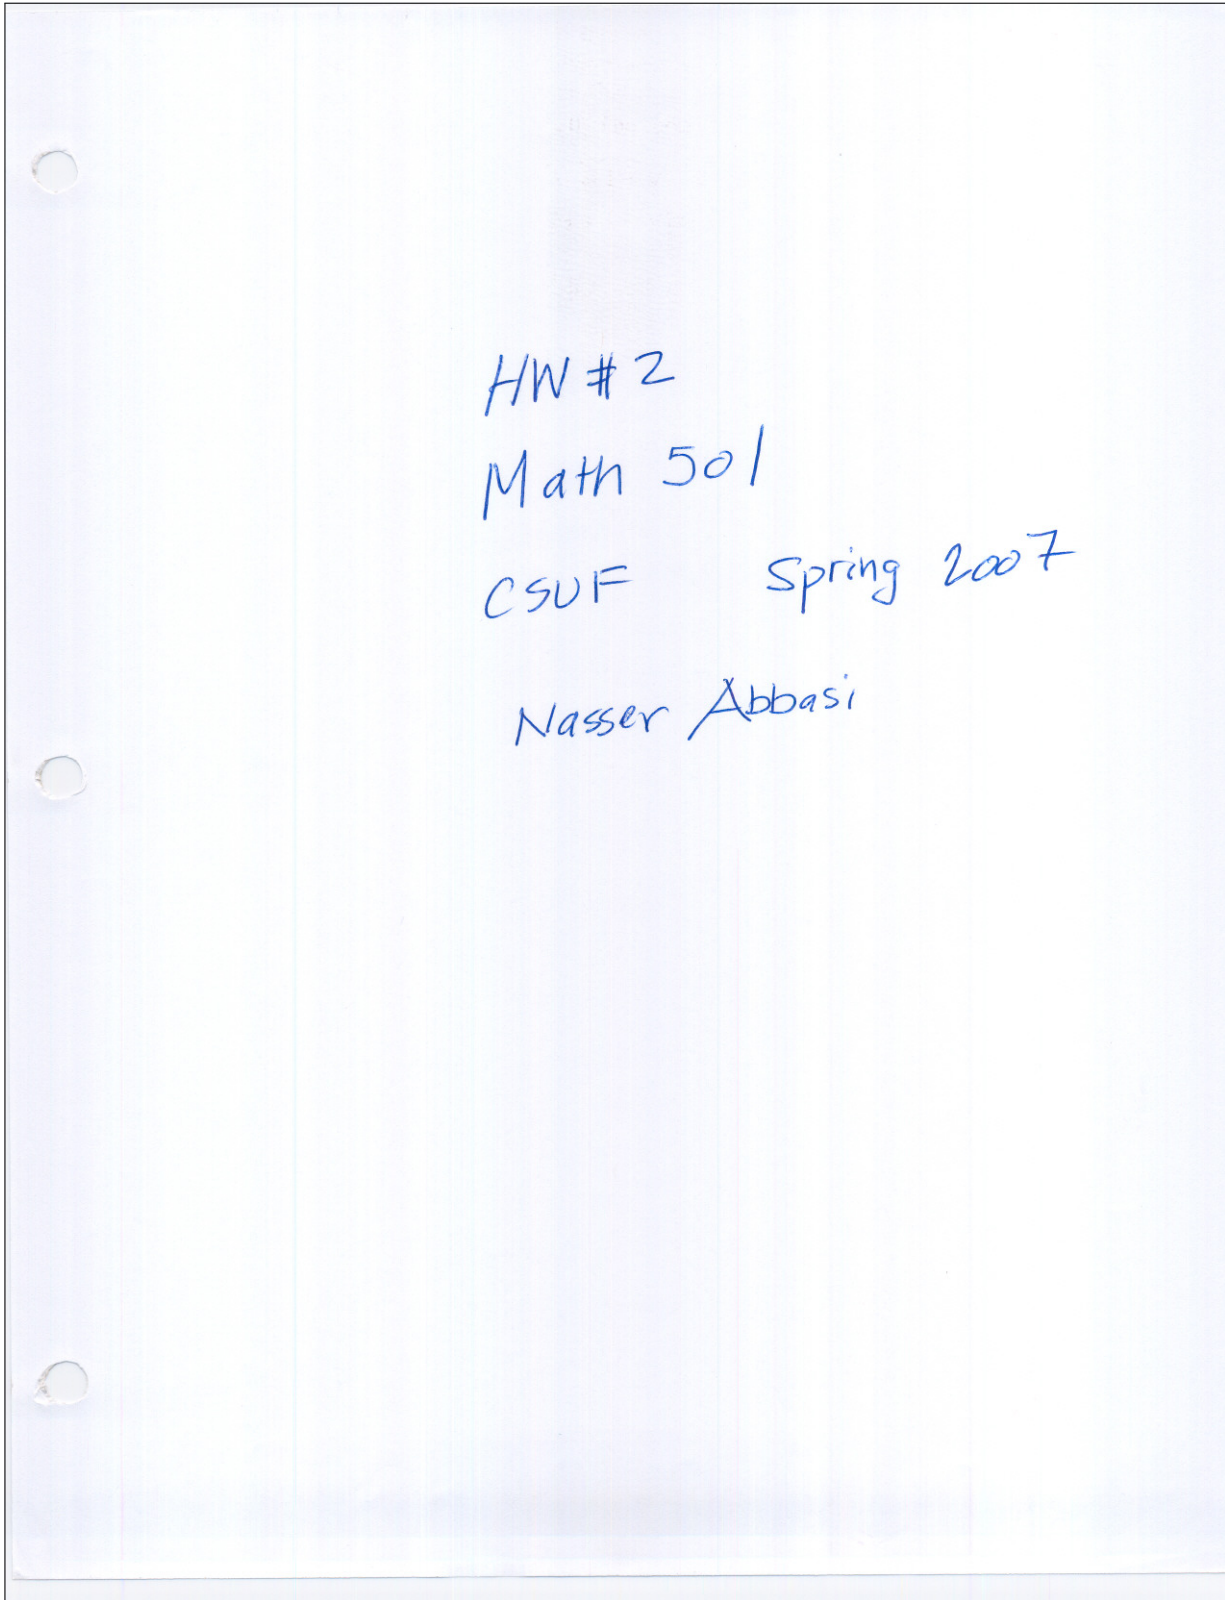 HW # 2
Math 501
CSUF Spring 2007
Nasser Abbasi